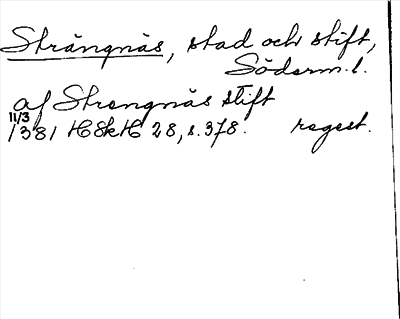 Strängnäs, stad och stift,
Söderm.l.
af Strengnäs stift
11/3
1381 HSkH 28, s. 378. regest.